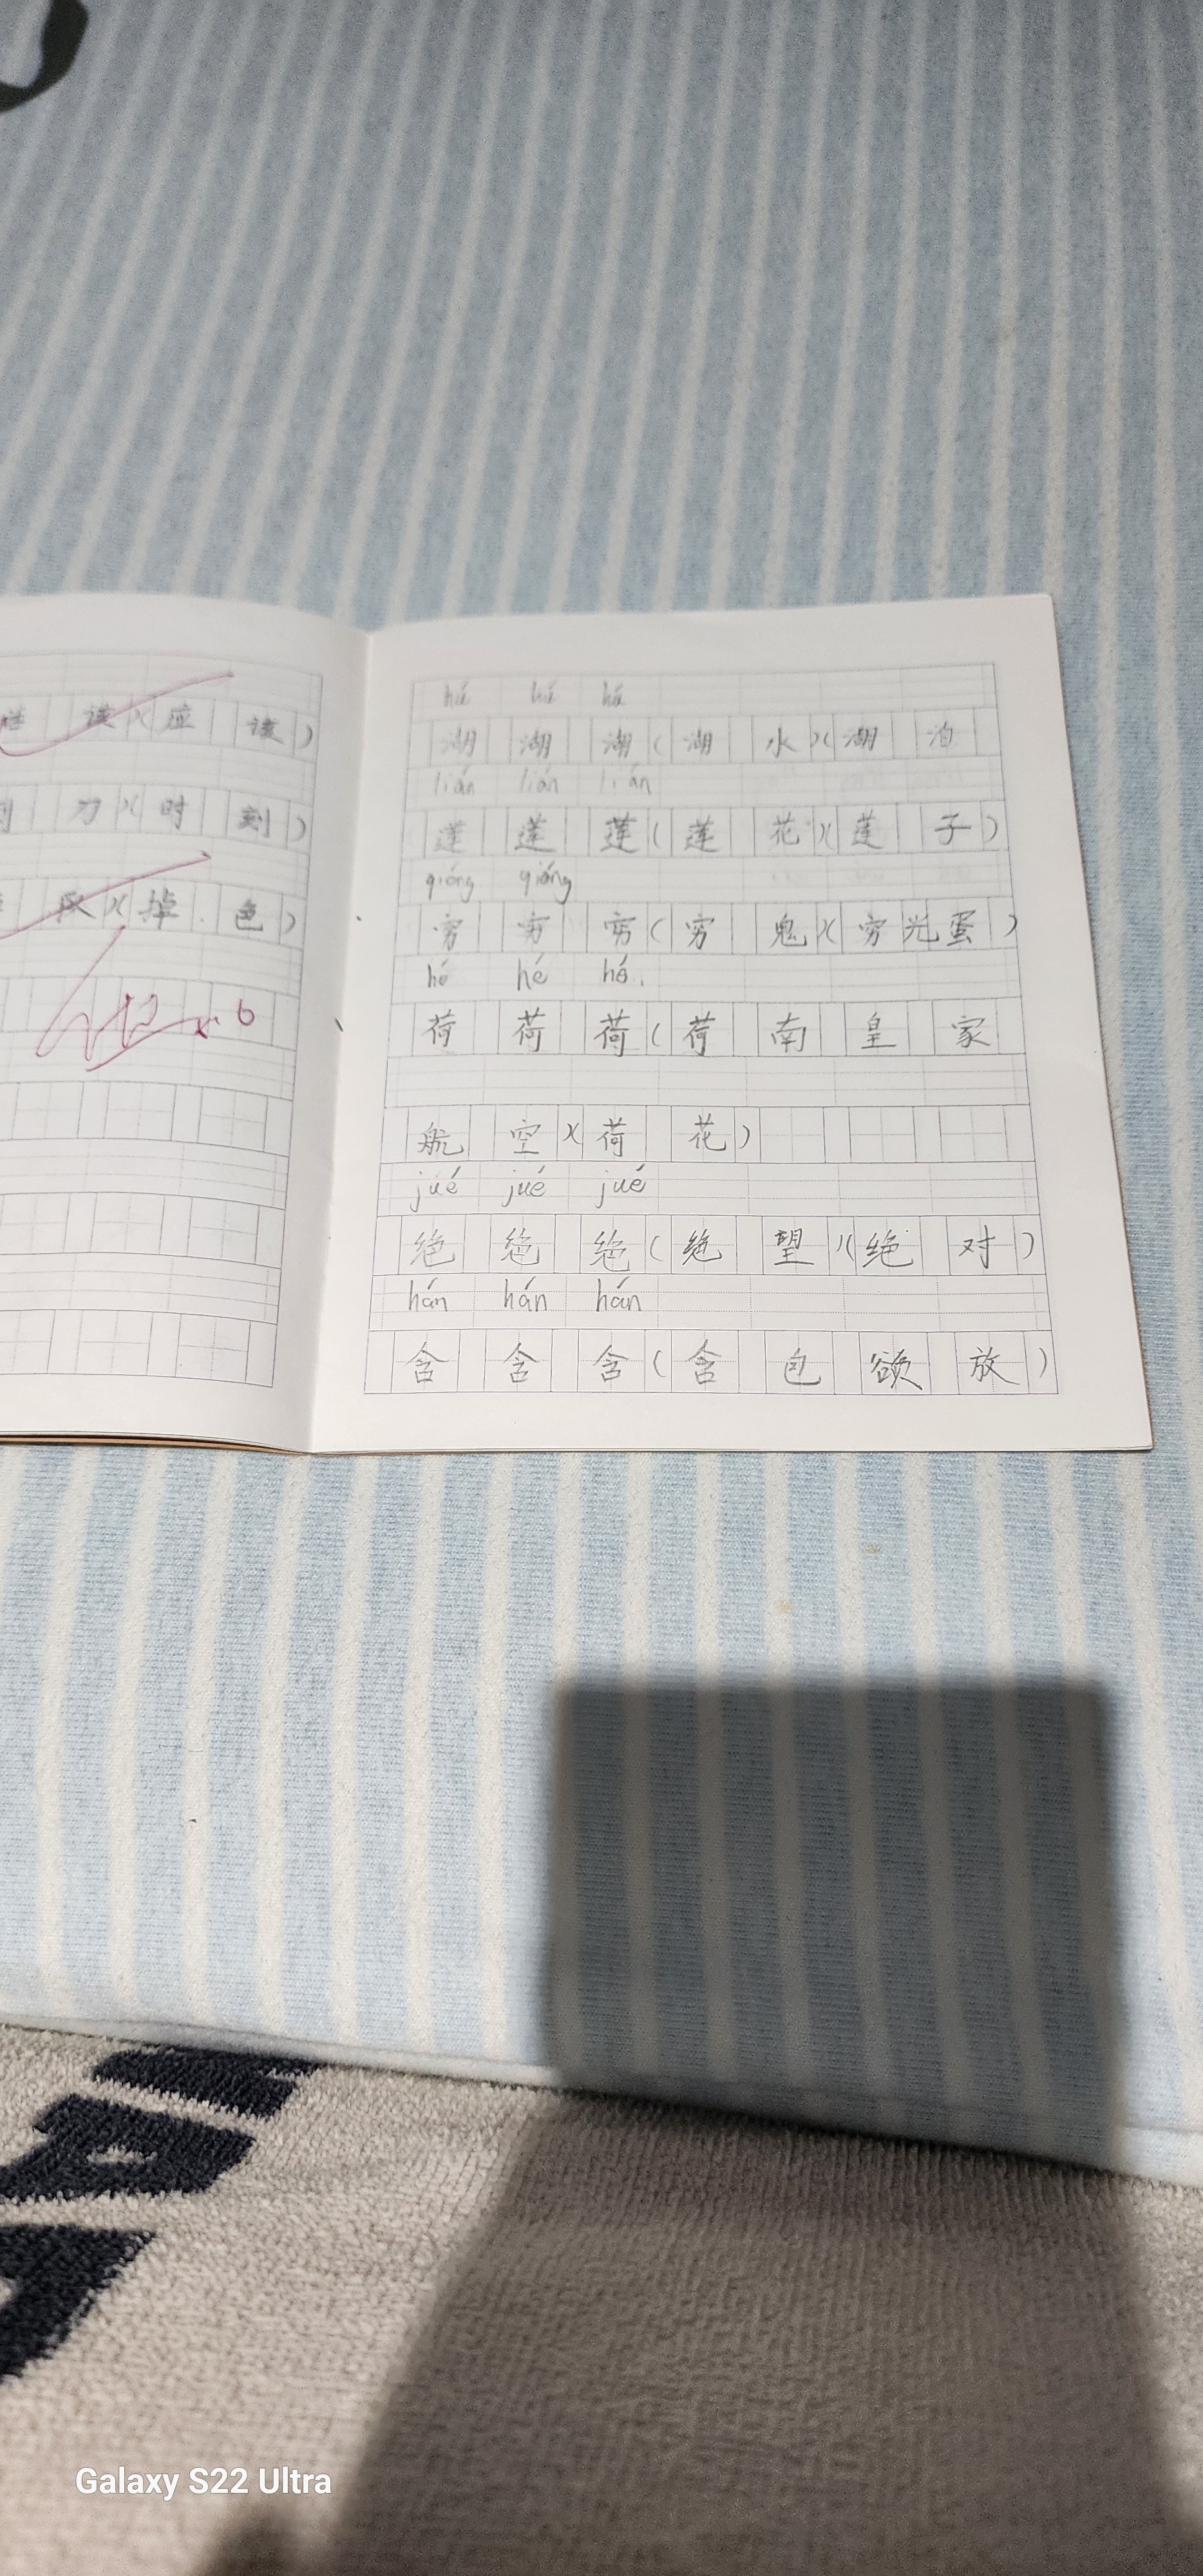 谈)(应 该)
刀)(时 刻)
队)(掉 色)
hú hú hú
湖 湖 湖(湖 水)(湖 泊
lián lián lián
莲 莲 莲(莲 花)(莲 子)
qióng qióng
穷 穷 穷(穷 鬼)(穷光蛋)
hé hé hé
荷 荷 荷(荷 南 皇 家
航 空)(荷 花)
jué jué jué
绝 绝 绝(绝 望)(绝 对)
hán hán hán
含 含 含(含 包 欲 放)
Galaxy S22 Ultra